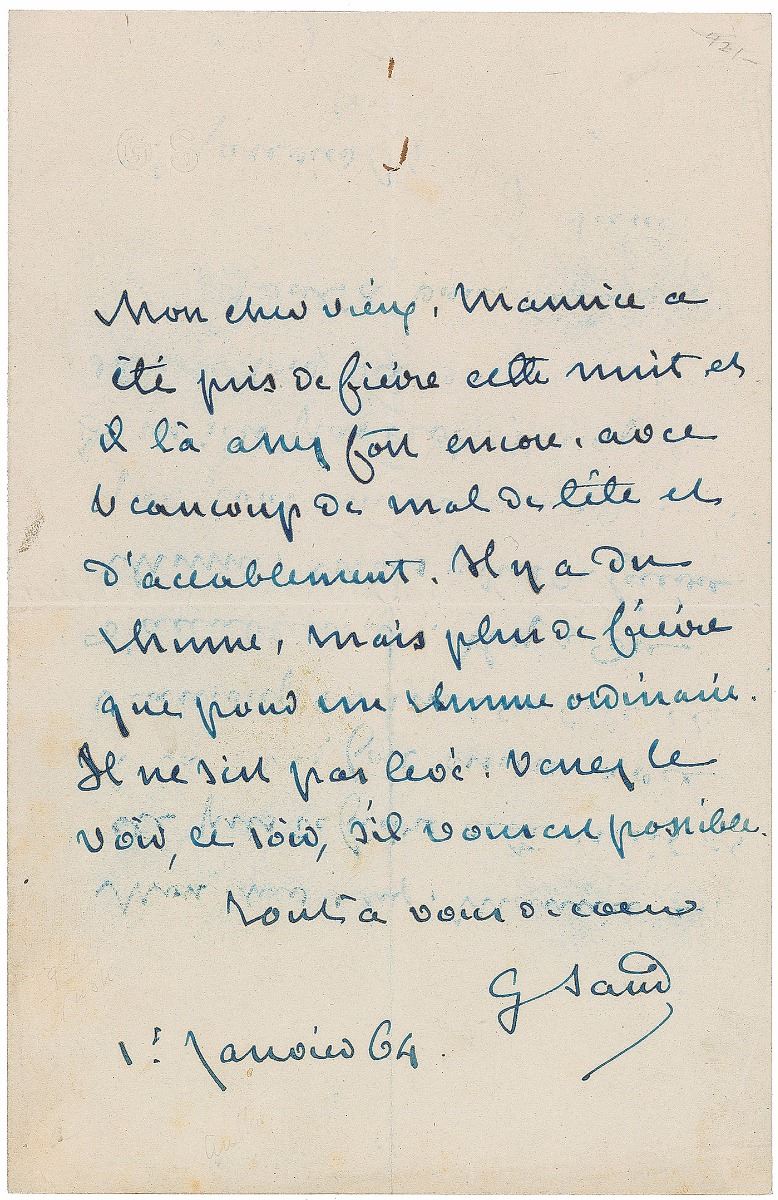 Mon cher vieux, Maurice a
été pris de fièvre cette nuit et
il l'a assez fort encore, avec
beaucoup de mal de tête et
d'accablement. Il y a du
rhume, mais plus de fièvre
que pour un rhume ordinaire.
Il ne s'est pas levé. Venez le
voir, ce soir, s'il vous est possible.
Tout à vous de coeur
G Sand
1er Janvier 64.